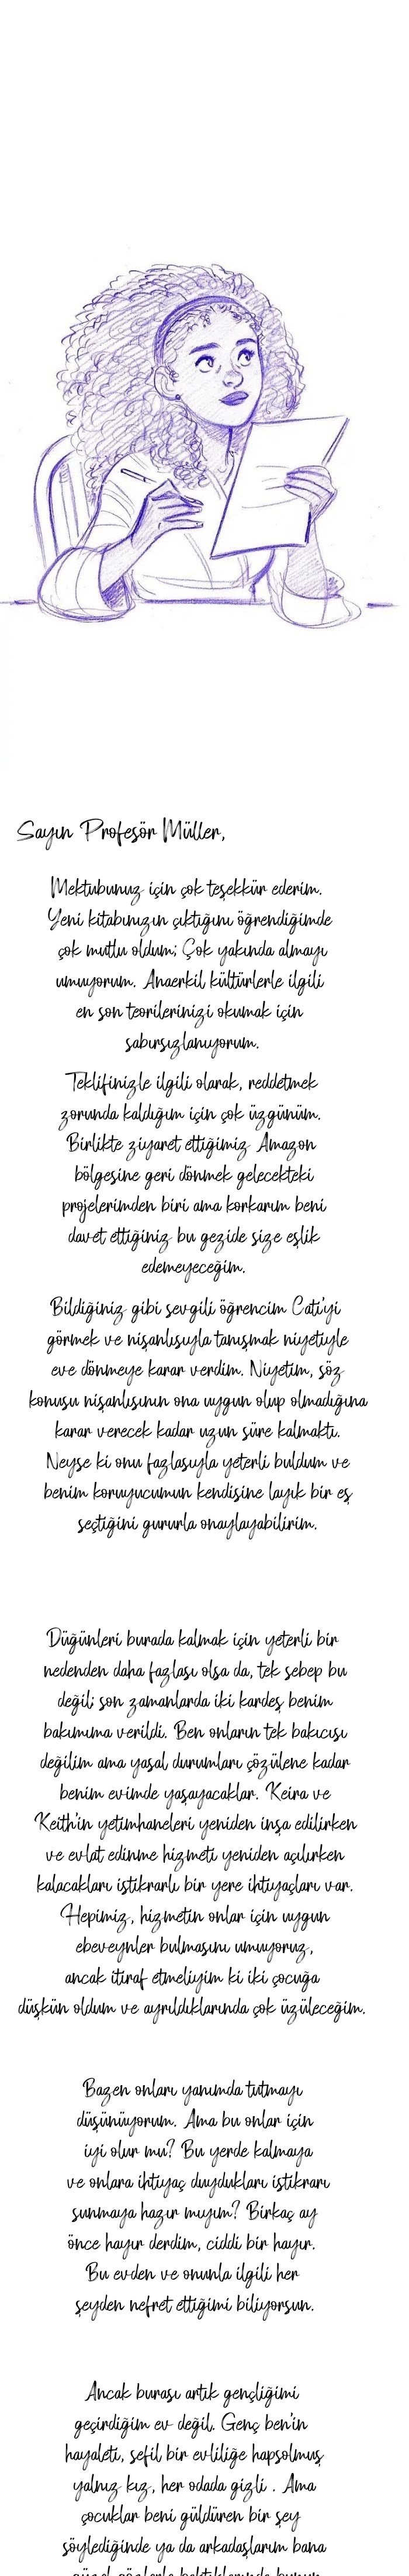 Sayın Profesör Müller,
Mektubunuz için çok teşekkür ederim.
Yeni kitabınızın çıktığını öğrendiğimde
çok mutlu oldum; Çok yakında almayı
umuyorum. Anaerkil kültürlerle ilgili
en son teorilerinizi okumak için
sabırsızlanıyorum.
Teklifinizle ilgili olarak, reddetmek
zorunda kaldığım için çok üzgünüm.
Birlikte ziyaret ettiğimiz Amazon
bölgesine geri dönmek gelecekteki
projelerimden biri ama korkarım beni
davet ettiğiniz bu gezide size eşlik
edemeyeceğim.
Bildiğiniz gibi sevgili öğrencim Cati'yi
görmek ve nişanlısıyla tanışmak niyetiyle
eve dönmeye karar verdim. Niyetim, söz
konusu nişanlısının ona uygun olup olmadığına
karar verecek kadar uzun süre kalmaktı.
Neyse ki onu fazlasıyla yeterli buldum ve
benim koruyucumun kendisine layık bir eş
seçtiğini gururla onaylayabilirim.
Düğünleri burada kalmak için yeterli bir
nedenden daha fazlası olsa da, tek sebep bu
değil; son zamanlarda iki kardeş benim
bakımıma verildi. Ben onların tek bakıcısı
değilim ama yasal durumları çözülene kadar
benim evimde yaşayacaklar. Keira ve
Keith'in yetimhaneleri yeniden inşa edilirken
ve evlat edinme hizmeti yeniden açılırken
kalacakları istikrarlı bir yere ihtiyaçları var.
Hepimiz, hizmetin onlar için uygun
ebeveynler bulmasını umuyoruz,
ancak itiraf etmeliyim ki iki çocuğa
düşkün oldum ve ayrıldıklarında çok üzüleceğim.
Bazen onları yanımda tutmayı
düşünüyorum. Ama bu onlar için
iyi olur mu? Bu yerde kalmaya
ve onlara ihtiyaç duydukları istikrarı
sunmaya hazır mıyım? Birkaç ay
önce hayır derdim, ciddi bir hayır.
Bu evden ve onunla ilgili her
şeyden nefret ettiğimi biliyorsun.
Ancak burası artık gençliğimi
geçirdiğim ev değil. Genç ben'in
hayaleti, sefil bir evliliğe hapsolmuş
yalnız kız, her odada gizli . Ama
çocuklar beni güldüren bir şey
söylediğinde ya da arkadaşlarım bana